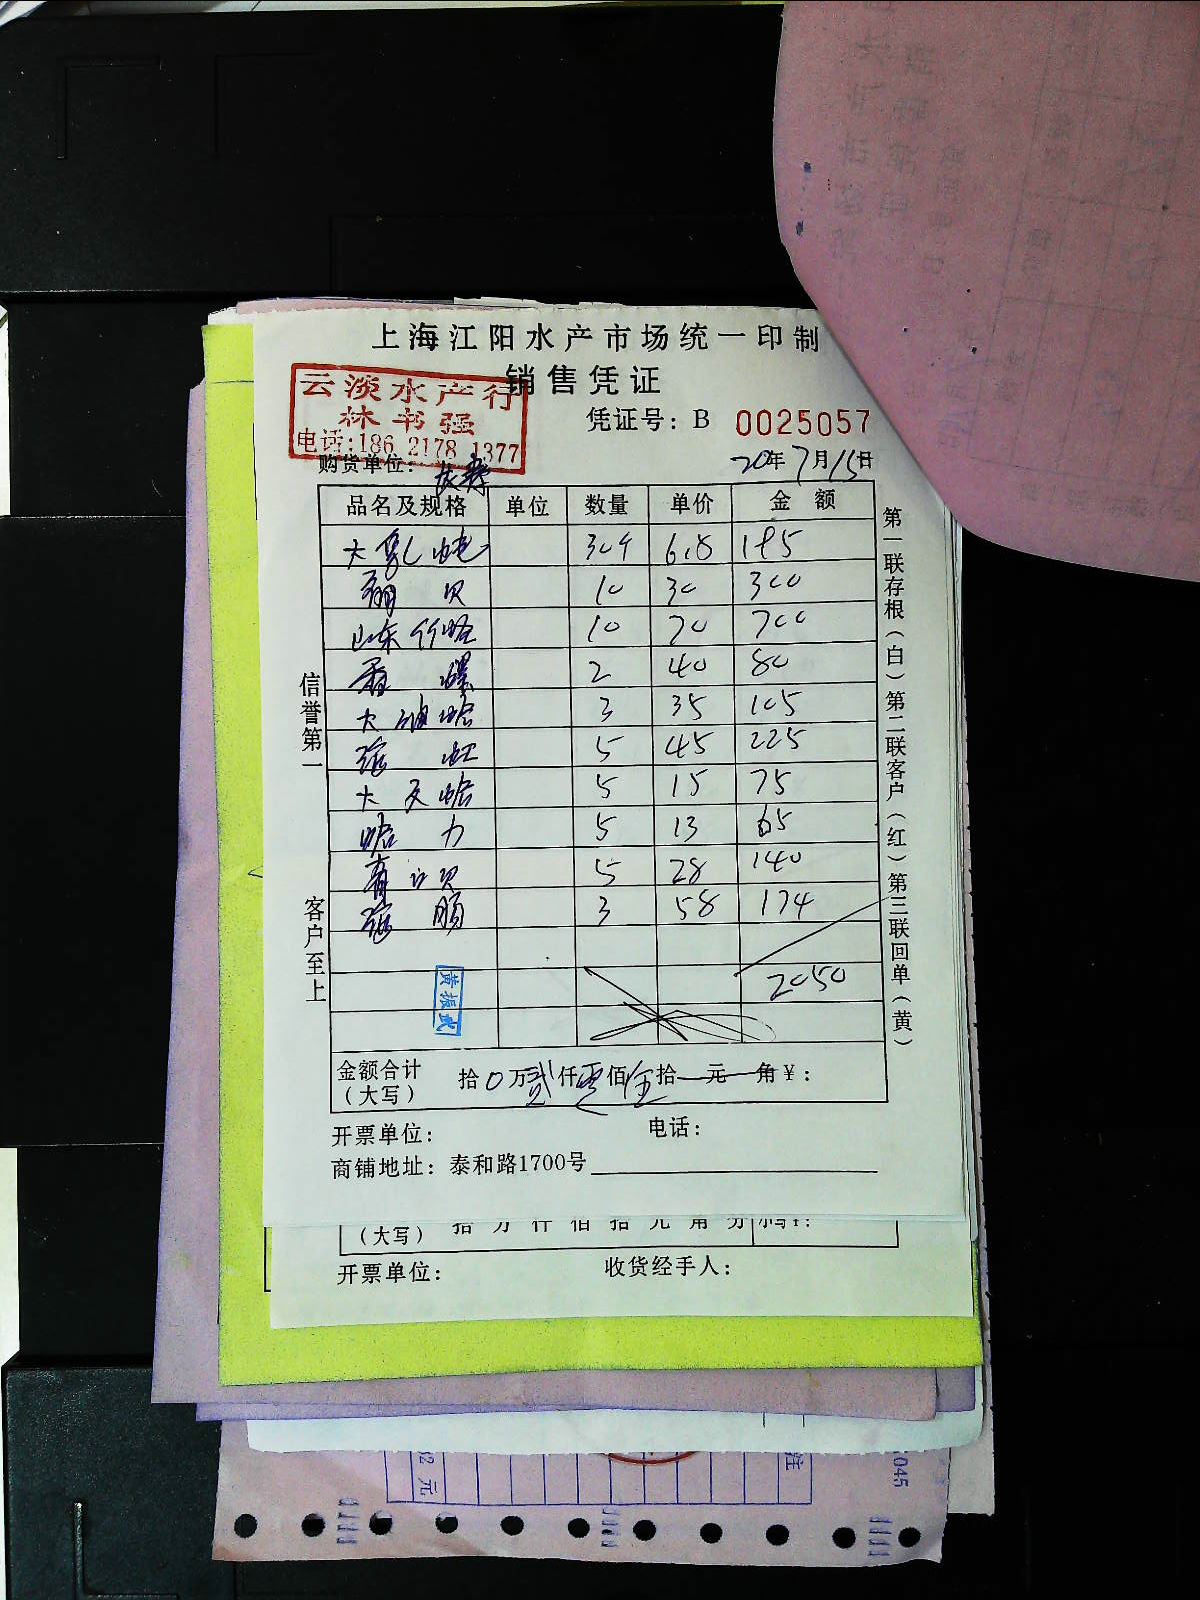 上海江阳水产市场统一印制
销售凭证
云淡水产行
林书强
电话:186 2178 1377
凭证号: B 0025057
购货单位:
20年7月15日
品名及规格 单位 数量 单价 金额
大 304 6.8 185
贝 10 30 300
山东竹蛤 10 70 700
香螺 2 40 80
大油蛤 3 35 105
虹 5 45 225
大文蛤 5 15 75
蛤力 5 13 65
青口贝 5 28 140
3 58 174
2050
黄振武
金额合计(大写) 拾0万贰仟零佰伍拾一元 角¥:
开票单位: 电话:
商铺地址: 泰和路1700号
信誉第一
客户至上
第一联存根(白)第二联客户(红)第三联回单(黄)
(大写) 拾 万 仟 佰 拾 元 角 分
开票单位: 收货经手人:
元
注